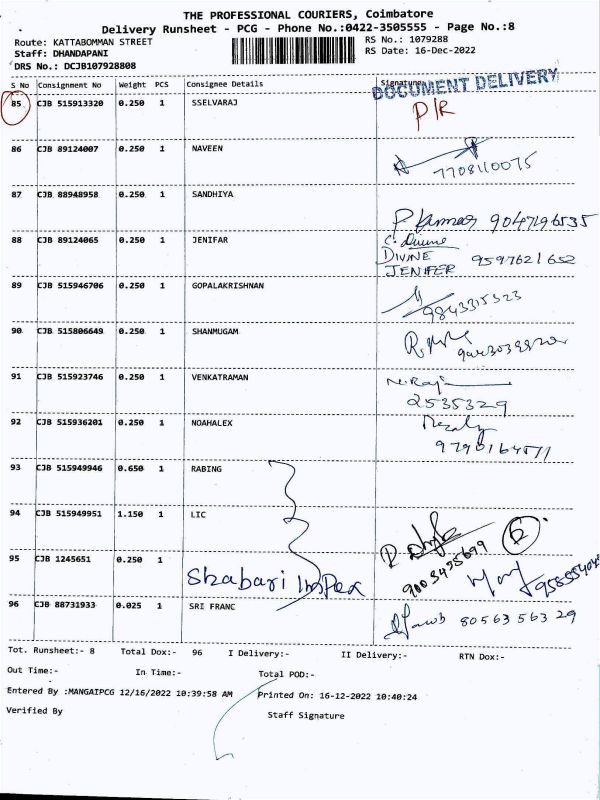 THE PROFESSIONAL COURIERS, Coimbatore
Delivery Runsheet - PCG - Phone No.:0422-3505555 - Page No.:8
Route: KATTABOMMAN STREET
RS No.: 1079288
Staff: DHANDAPANI
RS Date: 16-Dec-2022
DRS No.: DCJB107928808
S No Consignment No Weight PCS Consignee Details Signature
DOCUMENT DELIVERY
85 CJB 515913320 0.250 1 SSELVARAJ P/R
86 CJB 89124007 0.250 1 NAVEEN
7708110075
87 CJB 88948958 0.250 1 SANDHIYA
P Kumar 9047196535
88 CJB 89124065 0.250 1 JENIFAR C. Divine
DIVINE 9597621652
JENIFER
89 CJB 515946706 0.250 1 GOPALAKRISHNAN
9843315323
90 CJB 515806649 0.250 1 SHANMUGAM
91 CJB 515923746 0.250 1 VENKATRAMAN
2535329
92 CJB 515936201 0.250 1 NOAHALEX
9790164571
93 CJB 515949946 0.650 1 RABING
94 CJB 515949951 1.150 1 LIC
9003435699
95 CJB 1245651 0.250 1
Shabari Impex
96 CJB 88731933 0.025 1 SRI FRANC
80563 563 29
Tot. Runsheet:- 8 Total Dox:- 96 I Delivery:- II Delivery:- RTN Dox:-
Out Time:- In Time:- Total POD:-
Entered By :MANGAIPCG 12/16/2022 10:39:58 AM Printed On: 16-12-2022 10:40:24
Verified By Staff Signature